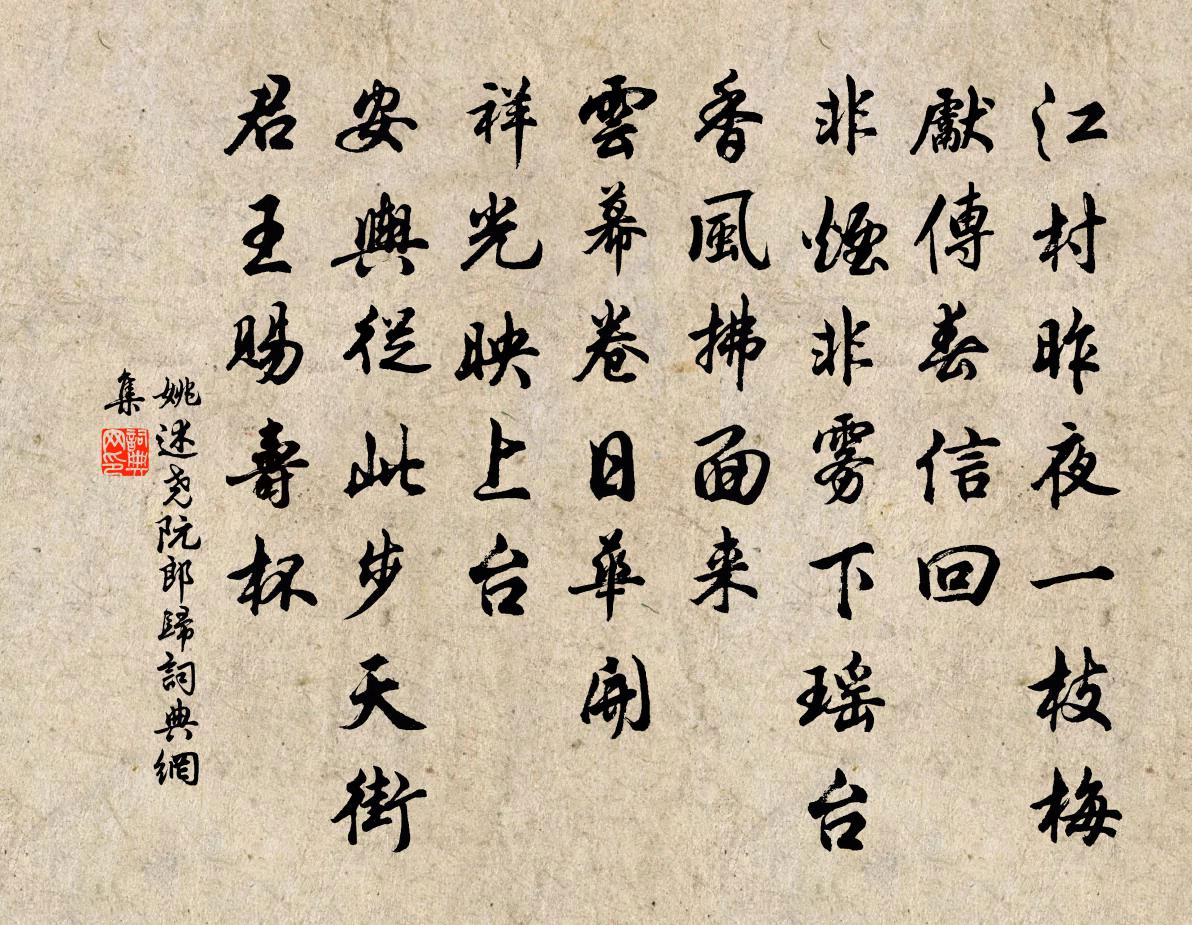 江村昨夜一枝梅
獻傳春信回
非煙非雾下瑶台
香風拂面来
雲幕卷日華開
祥光映上台
安輿從此步天街
君王賜壽杯
姚述尧阮郎歸詞典網
集
詞典
网印